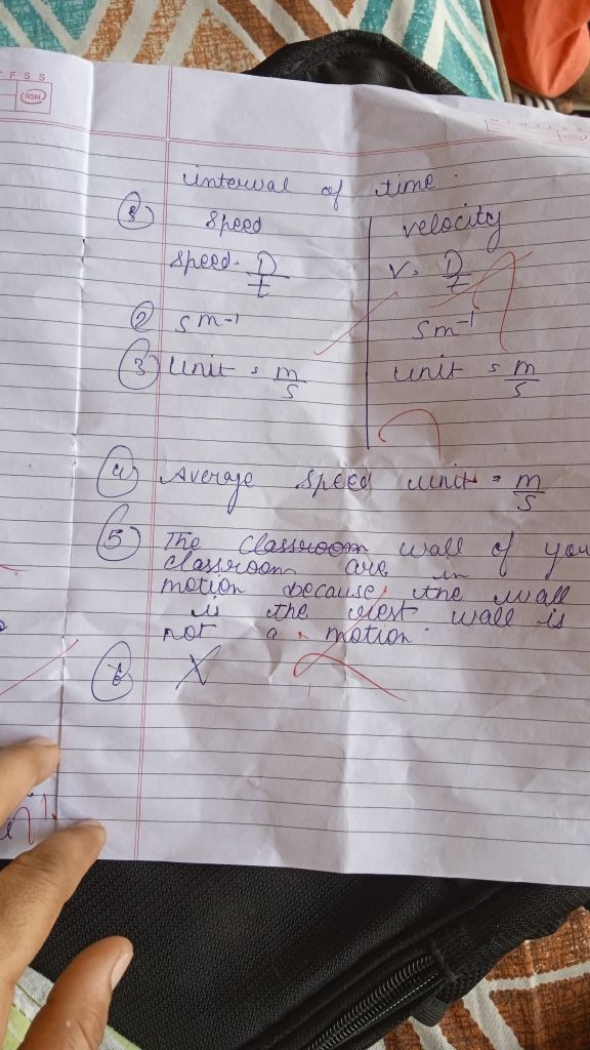 F S S
RSM
interval of time.
① speed velocity
speed = D/t V = D/t
② sm⁻¹ sm⁻¹
③ unit = m/s unit = m/s
④ Average speed unit = m/s
⑤ The classroom wall of you
classroom are in
motion because, the wall
is the rest wall is
not a motion.
⑥ X